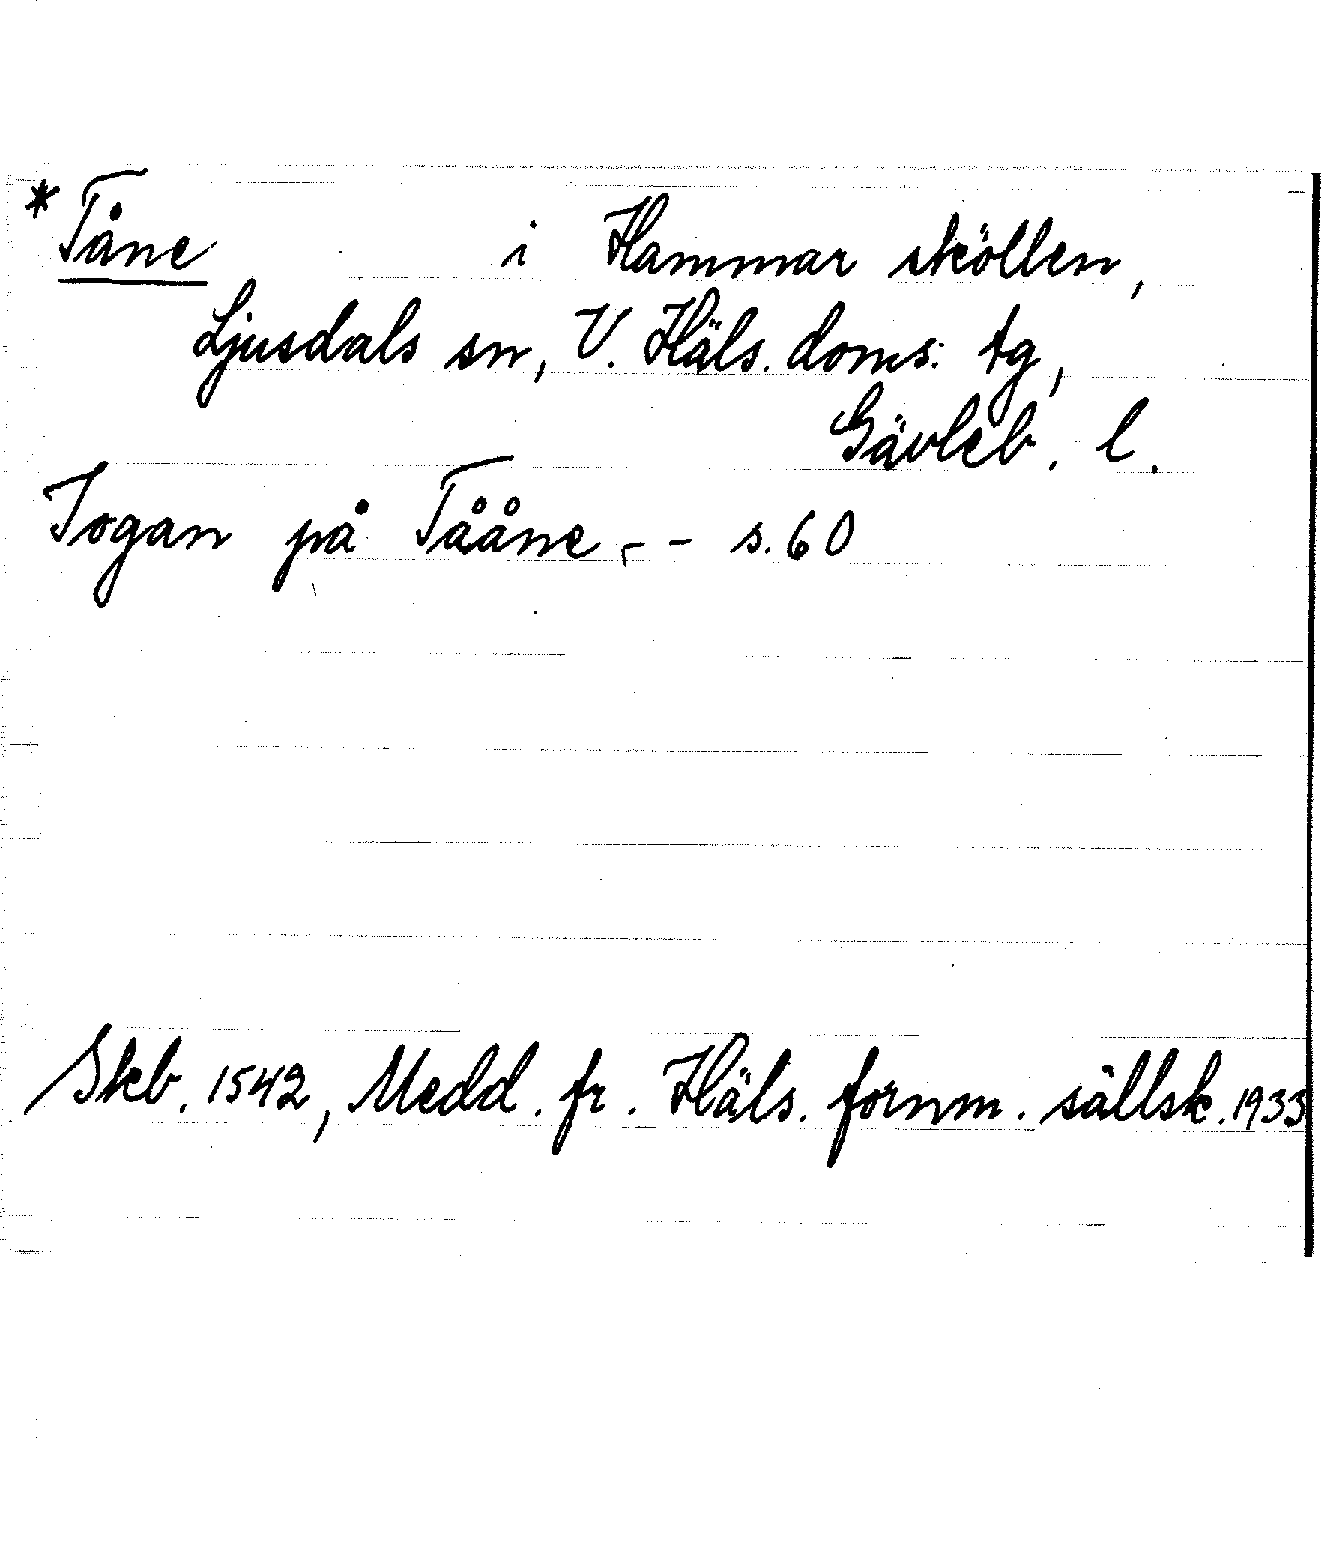 * Tåne i Hammar sköllen,
Ljusdals sn, V. Häls. doms. tg,
Gävleb. l.
Jogan på Tååne, - - s. 60
Skb. 1542, Medd. fr. Häls. fornm. sällsk. 1933